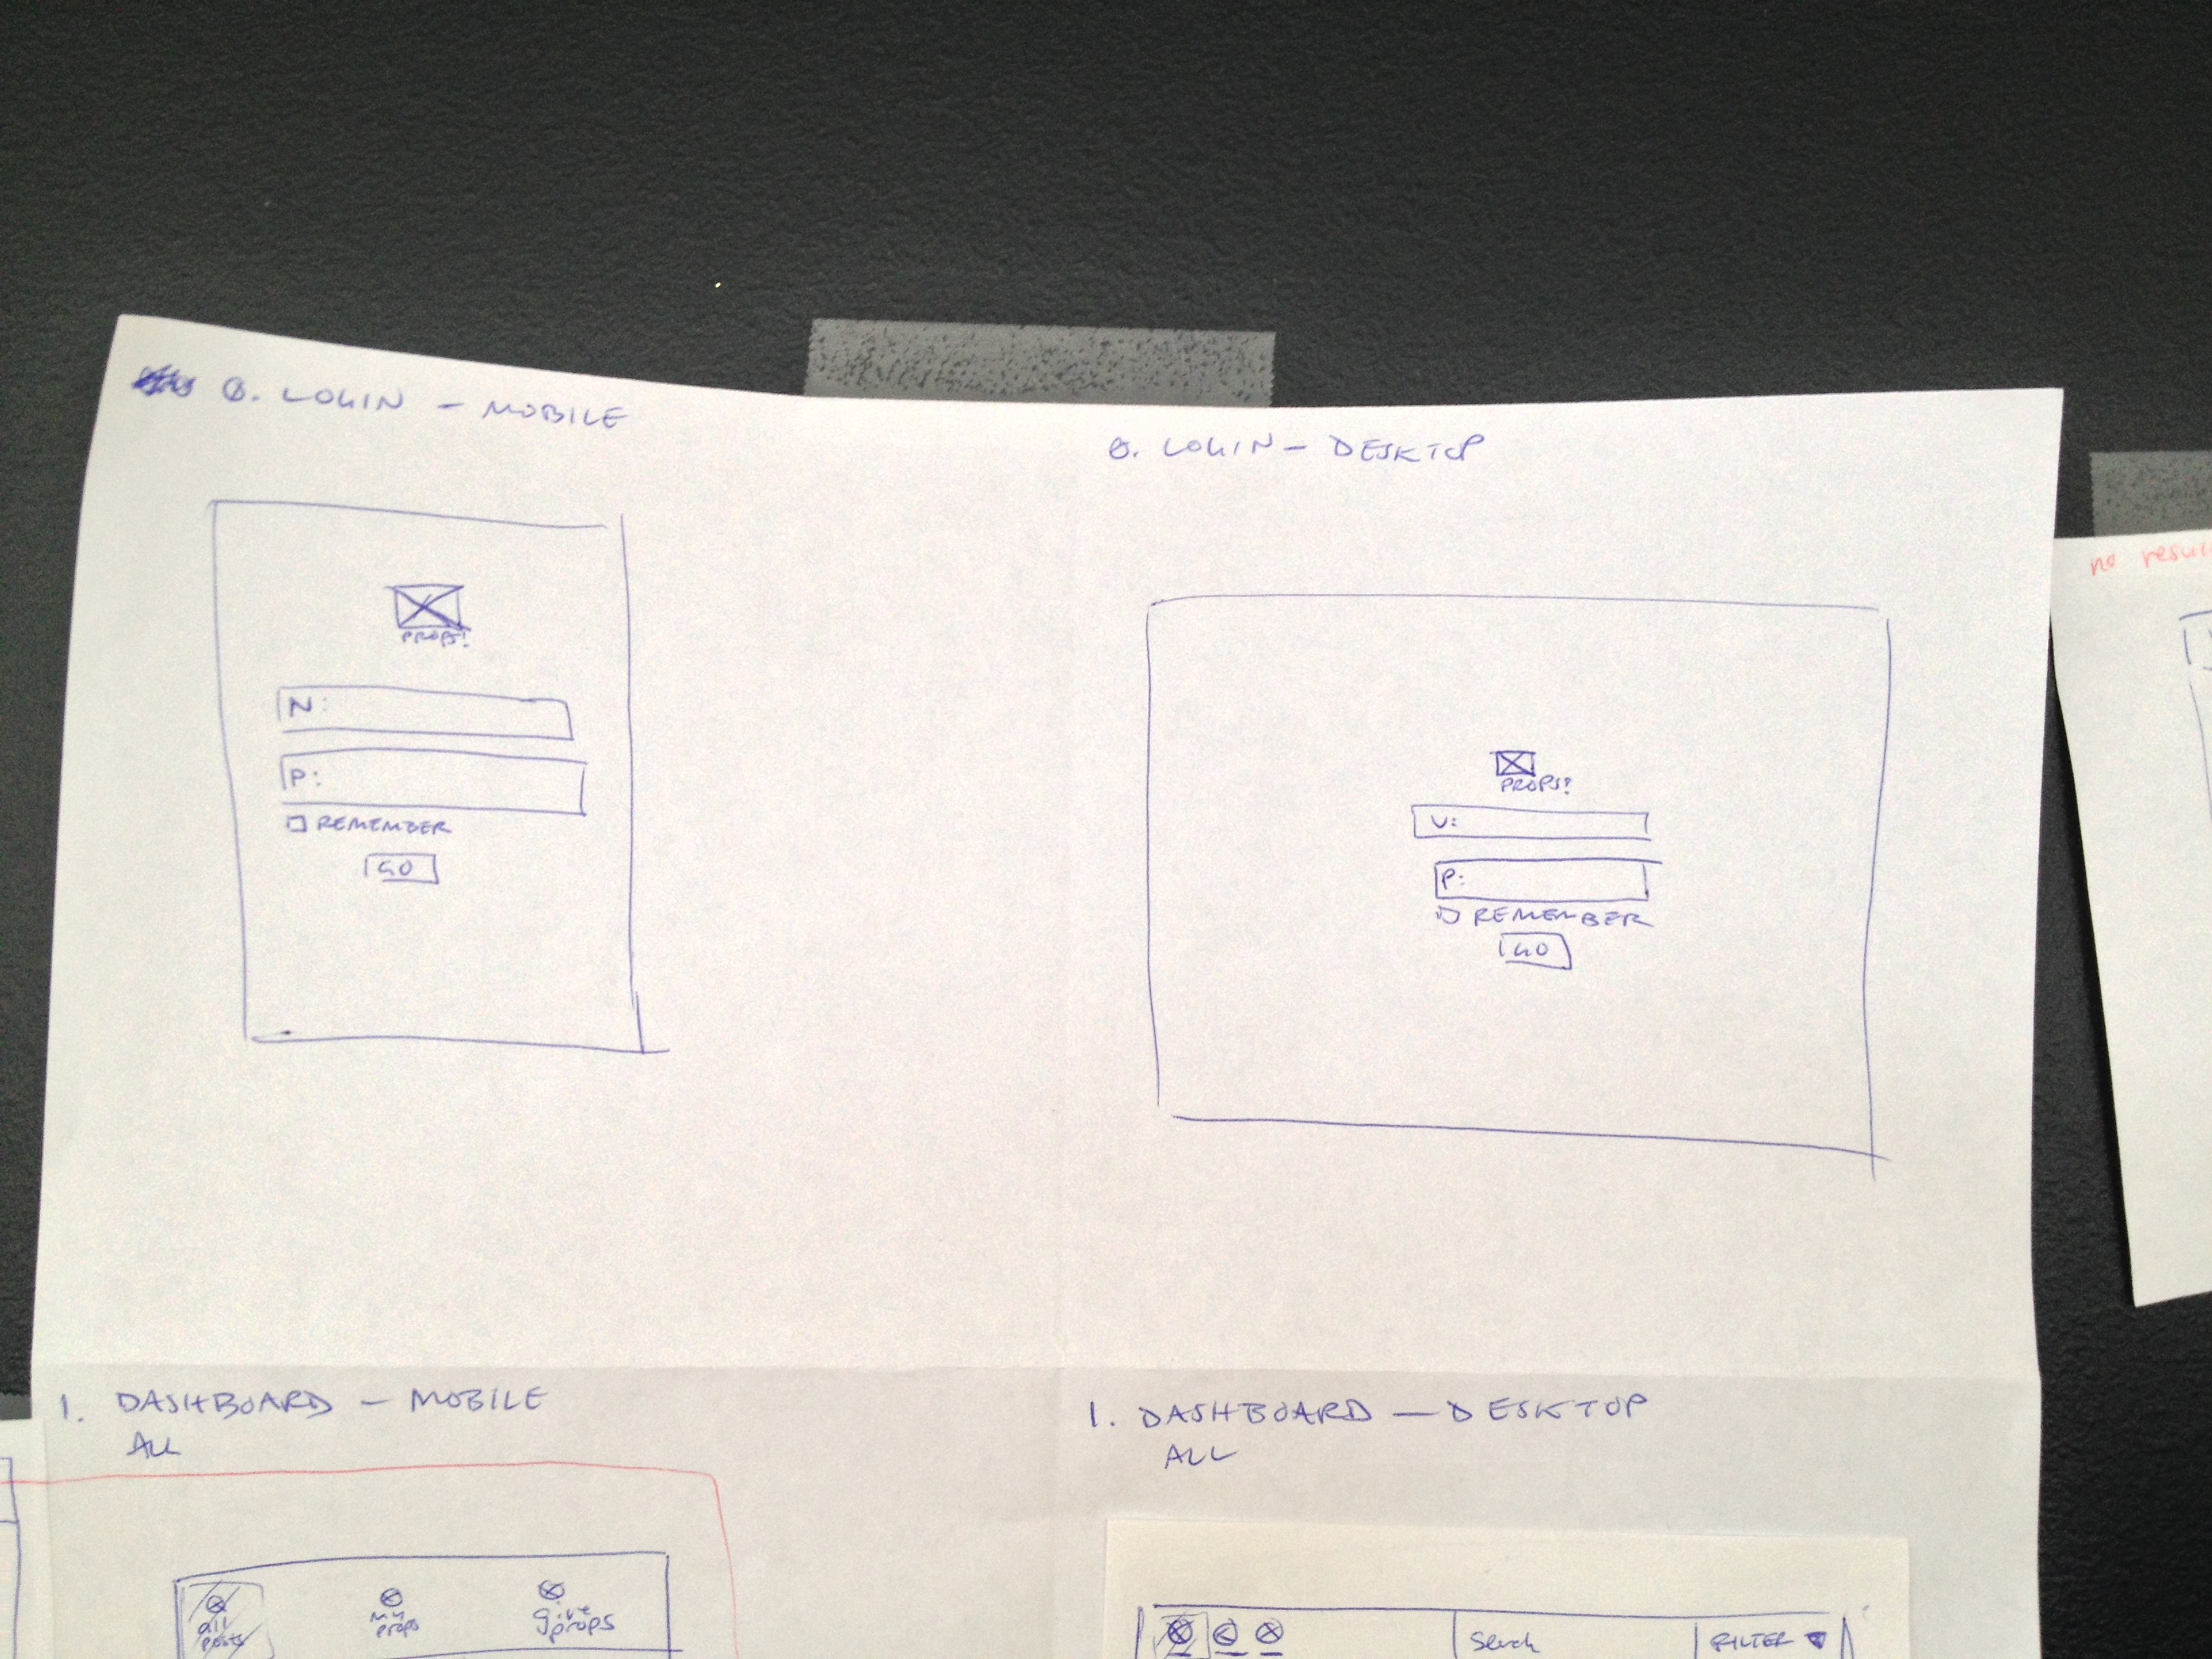 0. LOGIN - MOBILE
PROPS!
N:
P:
REMEMBER
GO
0. LOGIN - DESKTOP
PROPS!
U:
P:
REMEMBER
GO
no
1. DASHBOARD - MOBILE
ALL
all posts
my props
give props
1. DASHBOARD - DESKTOP
ALL
Search
FILTER